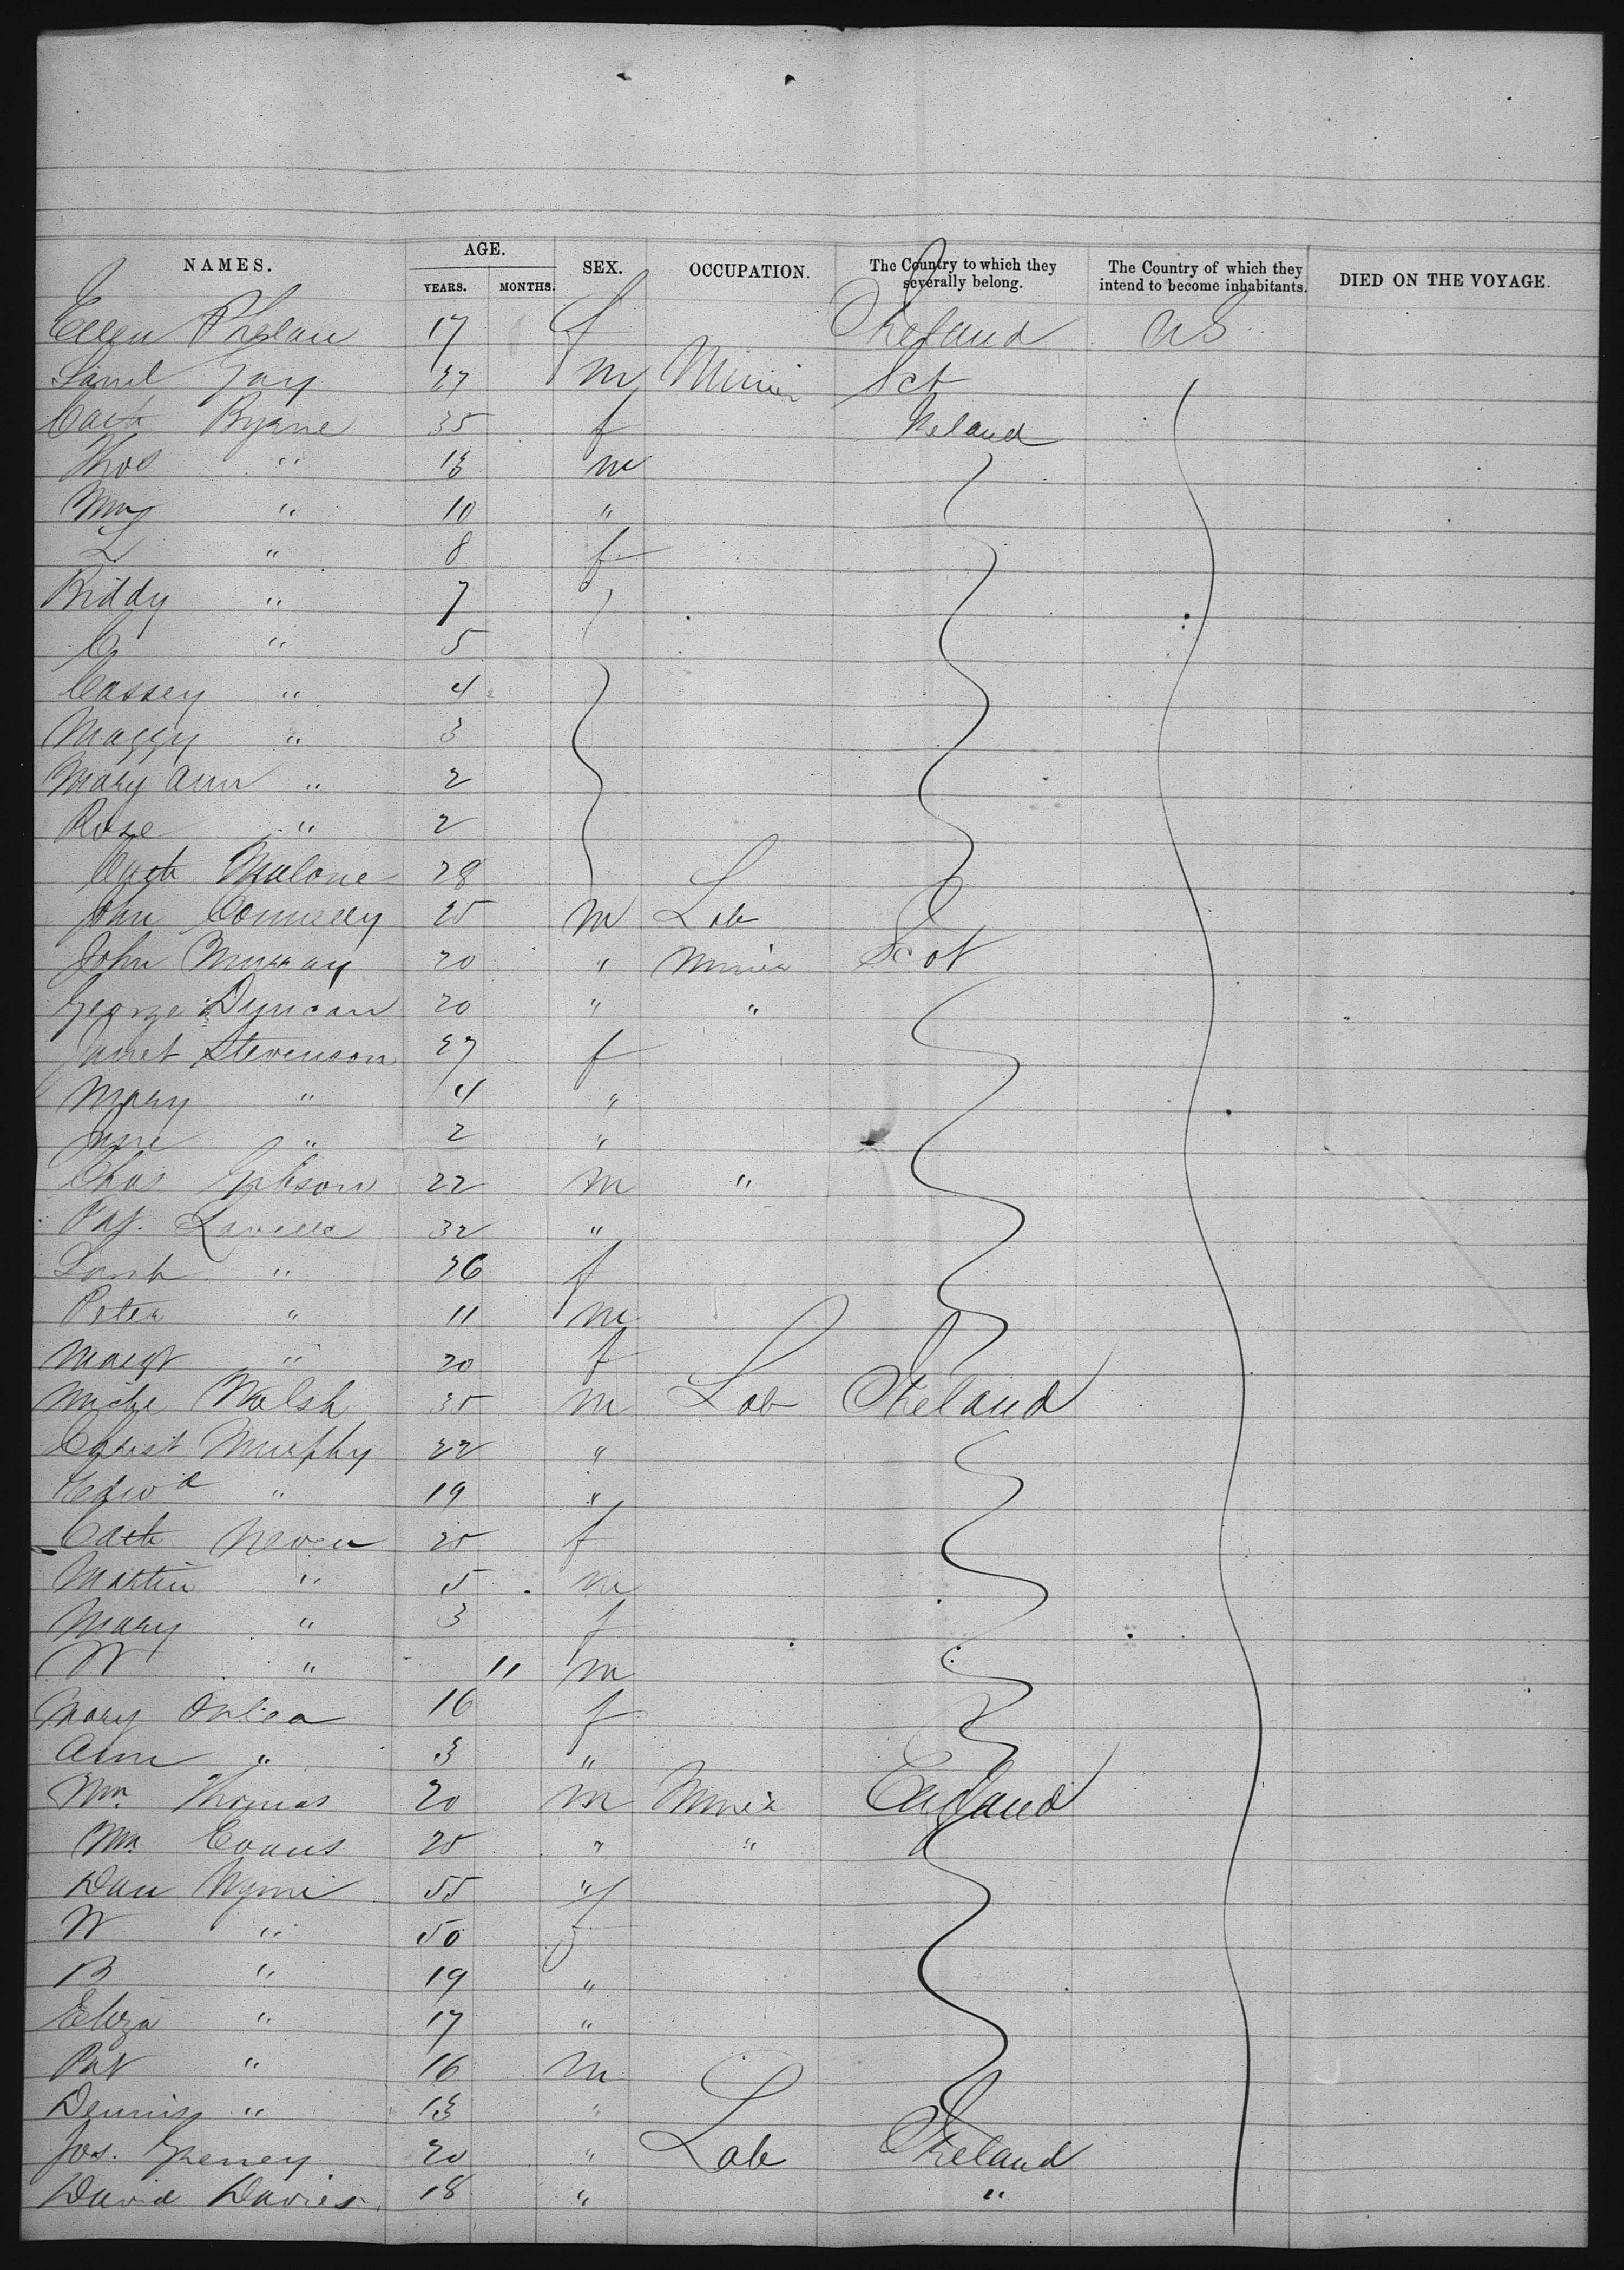 NAMES. AGE. YEARS. MONTHS. SEX. OCCUPATION. The Country to which they severally belong. The Country of which they intend to become inhabitants. DIED ON THE VOYAGE.
Ellen Phelan 17 f Ireland US
Saml Jay 27 m Miner Sct
Cath Byrne 35 f Ireland
Thos " 13 m
Wm " 10 "
L " 8 f
Biddy " 7
C " 5
Cassey " 4
Maggy " 3
Mary Ann " 2
Rose " 2
Cath Malone 28
John Connelly 25 m Lab
John Murray 20 " Miner Scot
George Duncan 20 " "
Janet Stevenson 27 f
Mary " 4 "
Jane " 2 "
Chas Gibson 22 m "
Pat. 32 "
Sarah " 26 f
Peter " 11 m
Margt " 20 f
Miche Walsh 35 m Lab Ireland
Christ Murphy 22 "
Edwd " 19 "
Cath Neven 25 f
Martin " 5 m
Mary " 3 f
W " 11 m
Mary 16 f
Ann " 3 "
Wm. Thomas 20 m Miner England
Wm. Evans 25 " "
Dan 55 "
W " 50 f
B " 19 "
Eliza " 17 "
Pat " 16 m
Dennis " 13 "
Jos. 20 " Lab Ireland
David Davies. 18 " "